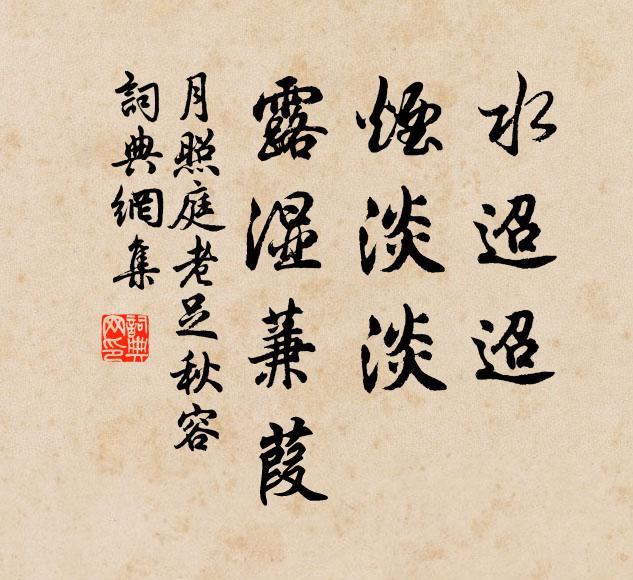 水迢迢
煙淡淡
露湿蒹葭
月照庭老足秋容
詞典網集
詞典網印